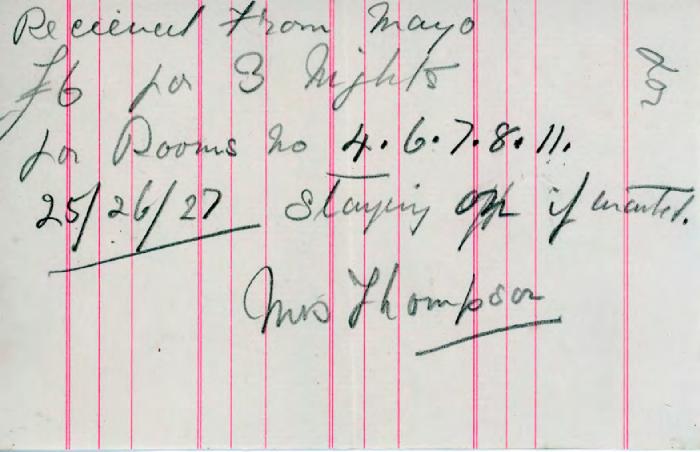 Recieved From Mayo
£6 for 3 Nights
for Rooms No 4. 6. 7. 8. 11.
25/26/27 Staying if wanted.
Mrs Thompson